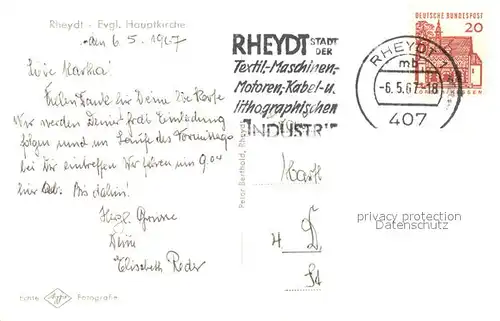 Rheydt - Evgl. Hauptkirche
am 6.5.1967
Liebe Martha!
Vielen Dank für Deine liebe Karte
Wir werden Deiner frdl. Einladung
folgen und im Laufe des Vormittags
bei Dir eintreffen. Wir fahren um 9.00
hier ab. Bis dahin!
Herzl. Grüsse
Deine
Elisabeth Reder
Echte Agfa Fotografie
Peter Berthold, Rheydt
RHEYDT STADT
DER
Textil-, Maschinen-,
Motoren-, Kabel- u.
lithographischen
INDUSTRIE
RHEYDT 1
mb
-6.5.67-18
407
DEUTSCHE BUNDESPOST
20
privacy protection
Datenschutz